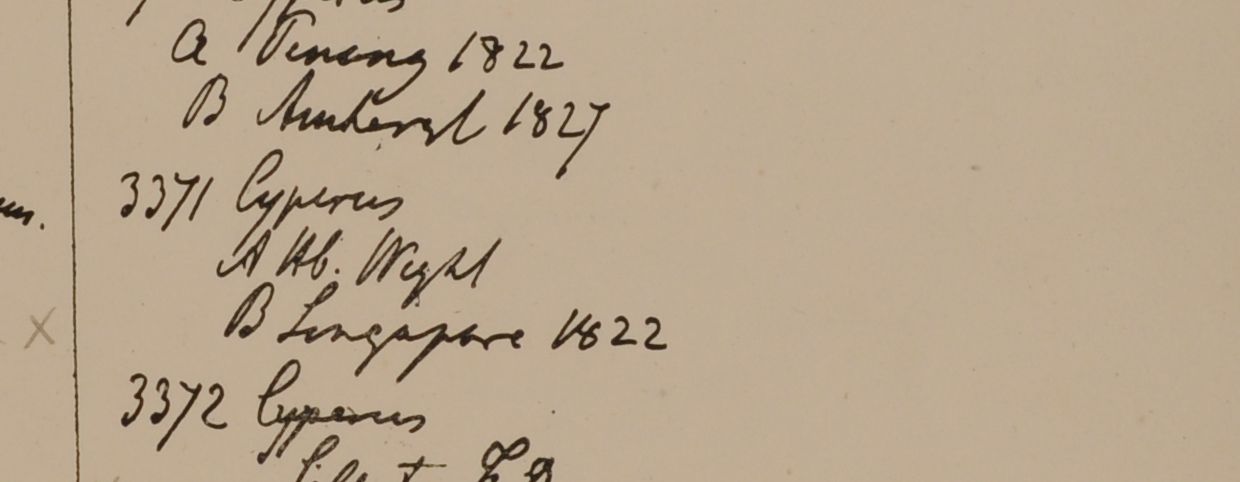 Cyperus
a Penang 1822
B Amherst 1827
3371 Cyperus
A Hb. Wight
B Singapore 1822
3372 Cyperus